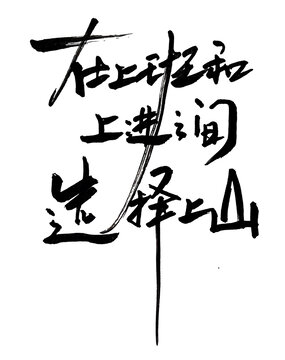 在上班和
上进之间
选择上山